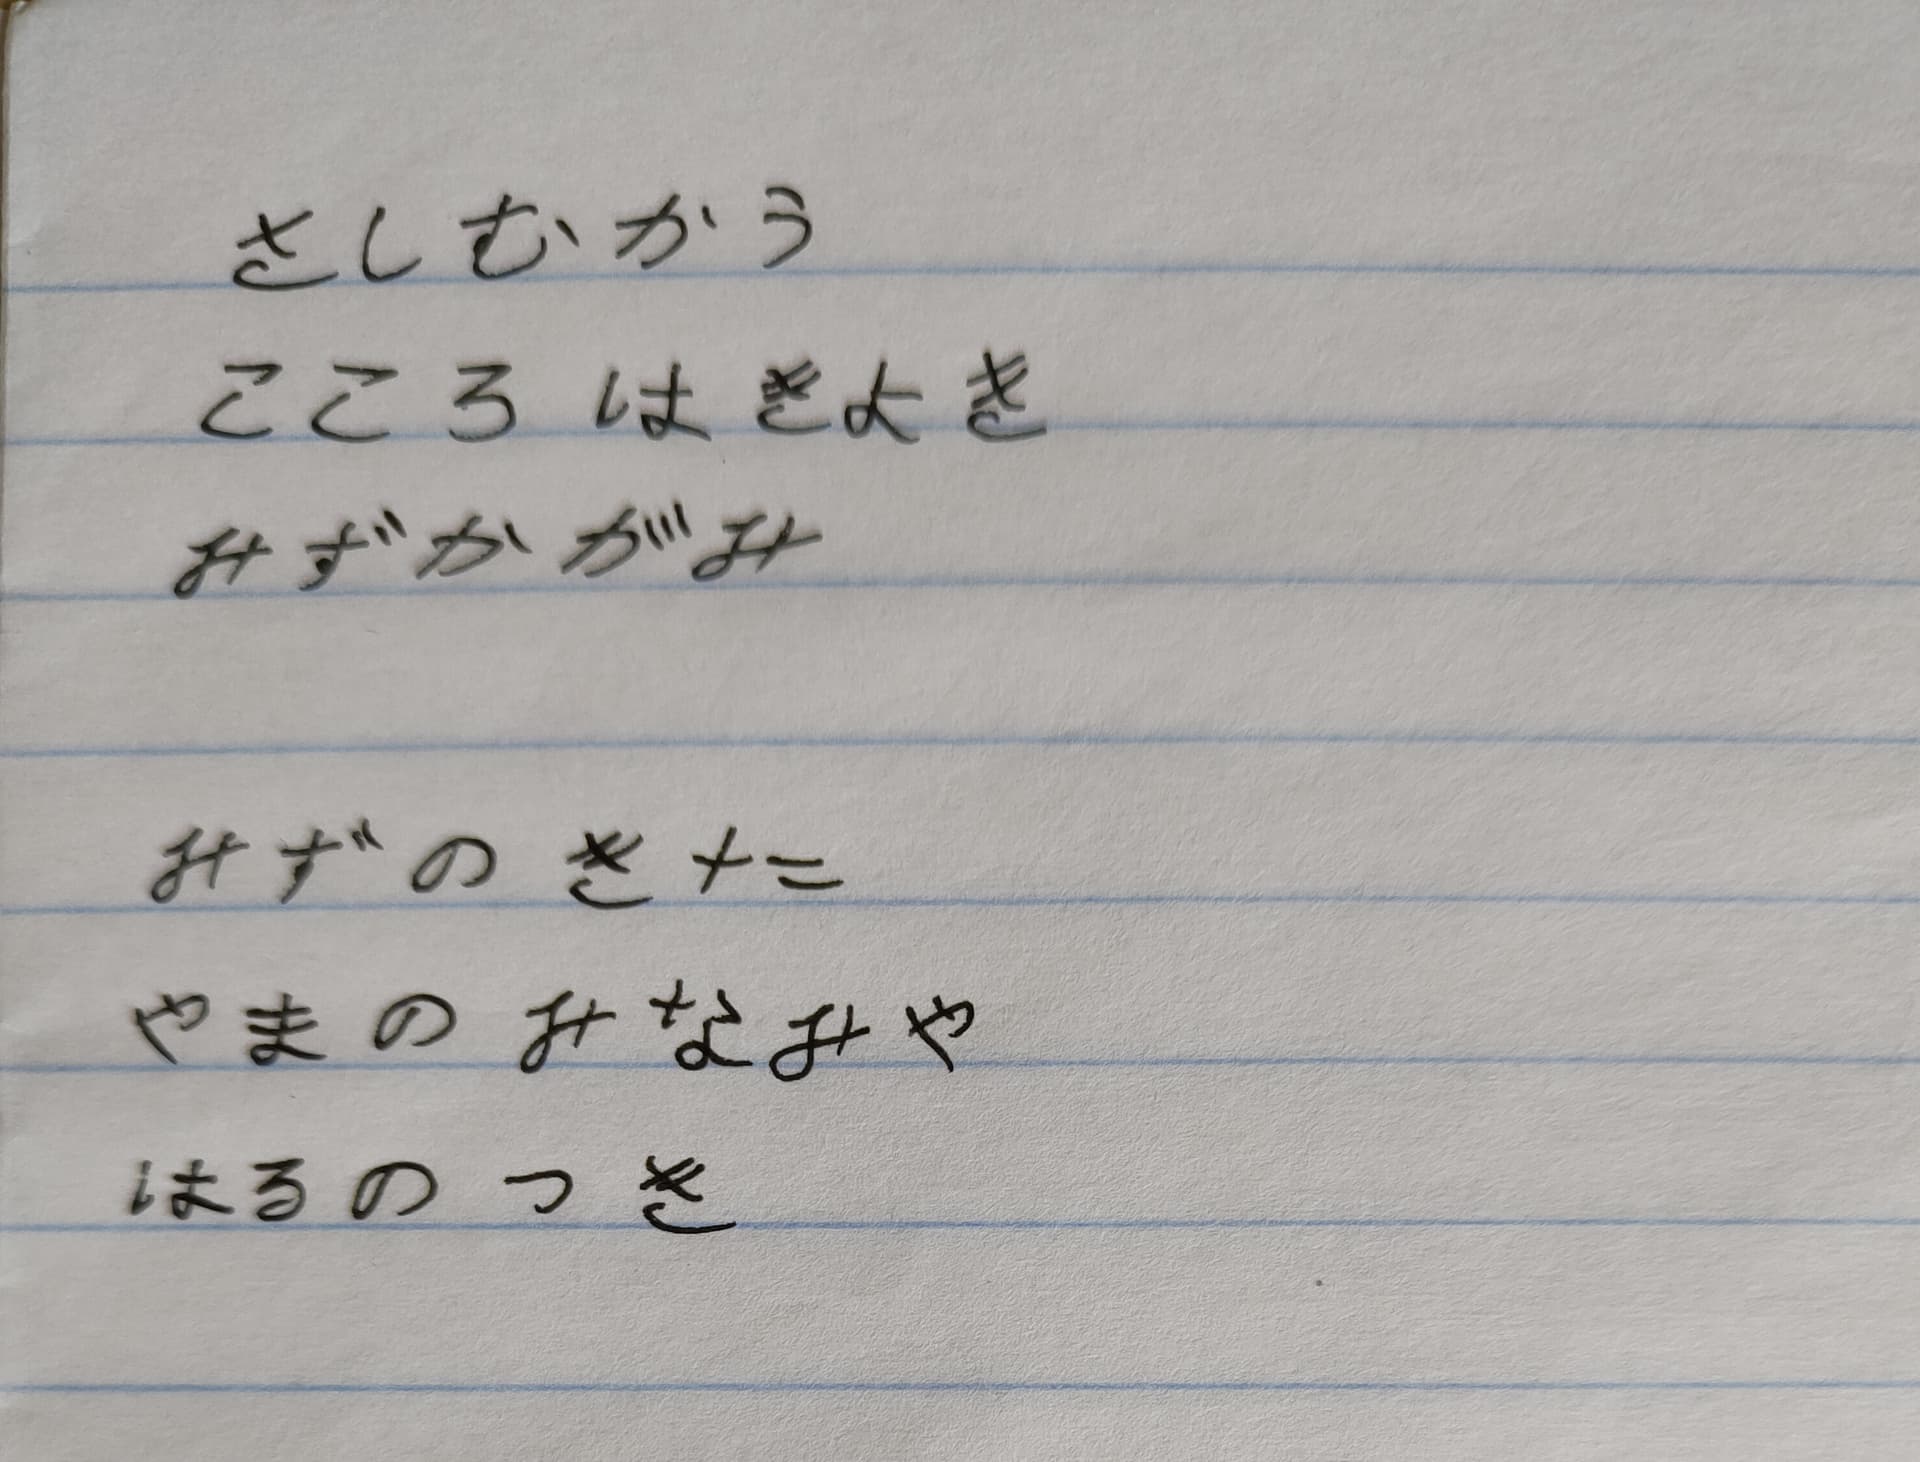 さしむかう
こころはきよき
みずかがみ
みずのきた
やまのみなみや
はるのつき